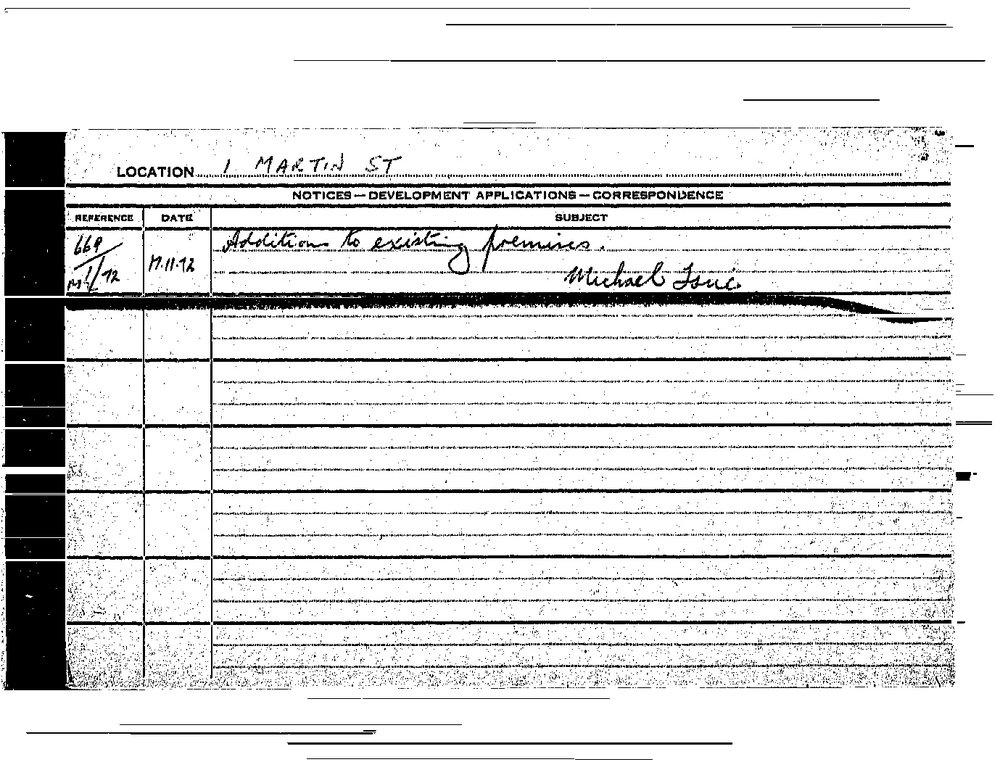 LOCATION 1 MARTIN ST
NOTICES — DEVELOPMENT APPLICATIONS — CORRESPONDENCE
REFERENCE DATE SUBJECT
669/M1/72 17.11.72 Additions to existing premises.
Michael